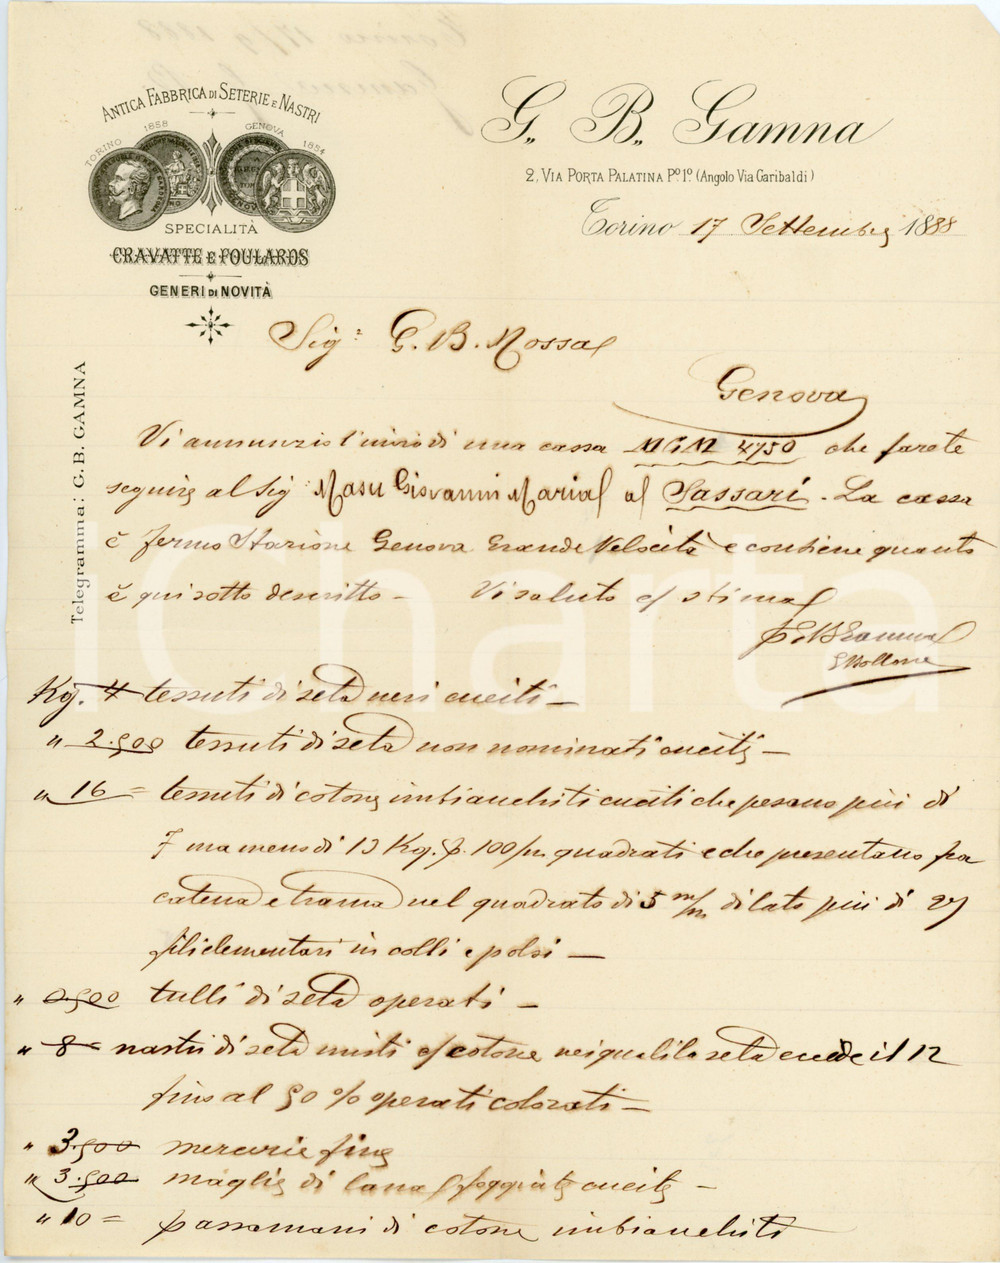 ANTICA FABBRICA DI SETERIE E NASTRI
TORINO 1858 GENOVA 1854
SPECIALITÀ
CRAVATTE E FOULARDS
GENERI DI NOVITÀ
G. B. Gamna
2, VIA PORTA PALATINA Pº 1º (Angolo Via Garibaldi)
Torino 17 Settembre 1888
Telegramma: G. B. GAMNA
Sigr G. B. Mossa
Genova
Vi annunzio l'invio di una cassa MGM 4750 che farete
seguire al Sig Masu Giovanni Maria di Sassari. La cassa
è fermo Stazione Genova Grande Velocità e contiene quanto
è qui sotto descritto – Vi saluto c/ stima
p G B Gamna
Kg. 4 tessuti di seta neri cuciti –
" 2.500 tessuti di seta non nominati cuciti –
" 16 = tessuti di cotone imbianchiti cuciti che pesano più di
7 ma meno di 13 Kg. p. 100/m quadrati e che presentano fra
catena e trama nel quadrato di 5 m/m di lato più di 27
fili elementari in colli e polsi –
" 0.500 tulli di seta operati –
" 8 = nastri di seta misti c/ cotone nei quali la seta eccede il 12
fino al 50 % operati colorati –
" 3.500 mercerie fine
" 3.500 maglie di lana foggiate cucite –
" 10 = passamani di cotone imbianchiti
iCharta